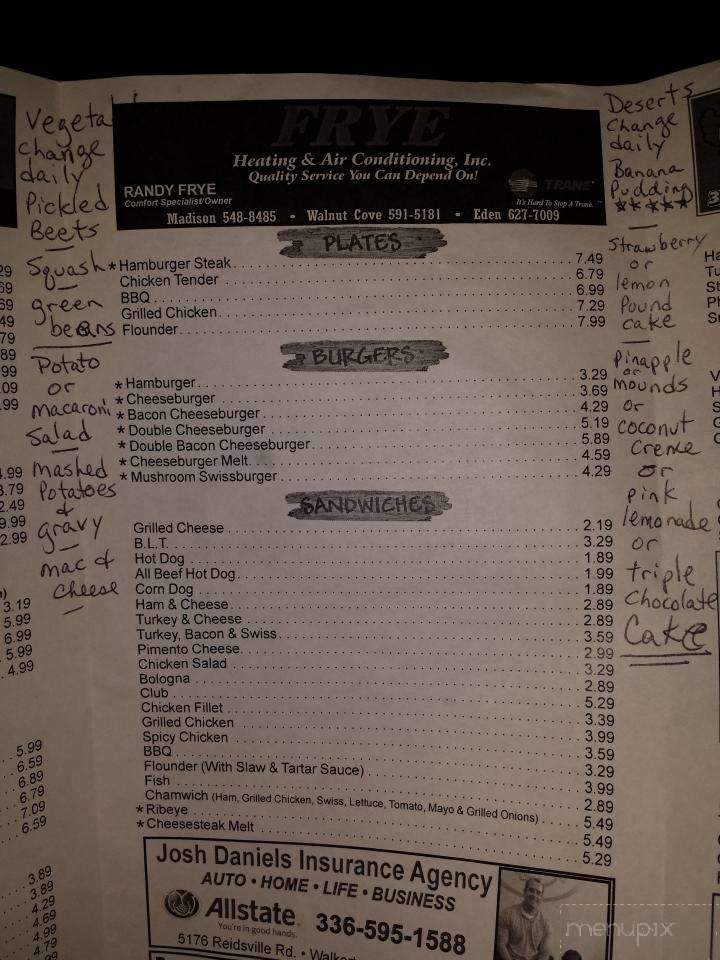 Vegeta
change
daily
Pickled
Beets
Squash
green
beans
Potato
or
macaroni
Salad
mashed
Potatoes
&
gravy
mac &
cheese
FRYE
Heating & Air Conditioning, Inc.
Quality Service You Can Depend On!
RANDY FRYE
Comfort Specialist/Owner
TRANE
It's Hard To Stop A Trane.
Madison 548-8485 • Walnut Cove 591-5181 • Eden 627-7009
PLATES
*Hamburger Steak 7.49
Chicken Tender 6.79
BBQ 6.99
Grilled Chicken 7.29
Flounder 7.99
BURGERS
*Hamburger 3.29
*Cheeseburger 3.69
*Bacon Cheeseburger 4.29
*Double Cheeseburger 5.19
*Double Bacon Cheeseburger 5.89
*Cheeseburger Melt 4.59
*Mushroom Swissburger 4.29
SANDWICHES
Grilled Cheese 2.19
B.L.T. 3.29
Hot Dog 1.89
All Beef Hot Dog 1.99
Corn Dog 1.89
Ham & Cheese 2.89
Turkey & Cheese 2.89
Turkey, Bacon & Swiss 3.59
Pimento Cheese 2.99
Chicken Salad 3.29
Bologna 2.89
Club 5.29
Chicken Fillet 3.39
Grilled Chicken 3.99
Spicy Chicken 3.59
BBQ 3.29
Flounder (With Slaw & Tartar Sauce) 3.99
Fish 2.89
Chamwich (Ham, Grilled Chicken, Swiss, Lettuce, Tomato, Mayo & Grilled Onions) 5.49
*Ribeye 5.49
*Cheesesteak Melt 5.29
Josh Daniels Insurance Agency
AUTO • HOME • LIFE • BUSINESS
Allstate
You're in good hands.
336-595-1588
5176 Reidsville Rd. • Walker
Deserts
Change
daily
Banana
Pudding
*****
Strawberry
or
lemon
Pound
cake
Pinapple
or
mounds
or
coconut
Creme
or
pink
lemonade
or
triple
Chocolate
Cake
3.19
5.99
6.99
5.99
4.99
5.99
6.59
6.89
6.79
7.09
6.59
3.89
3.89
4.29
4.69
4.99
4.79
menupix